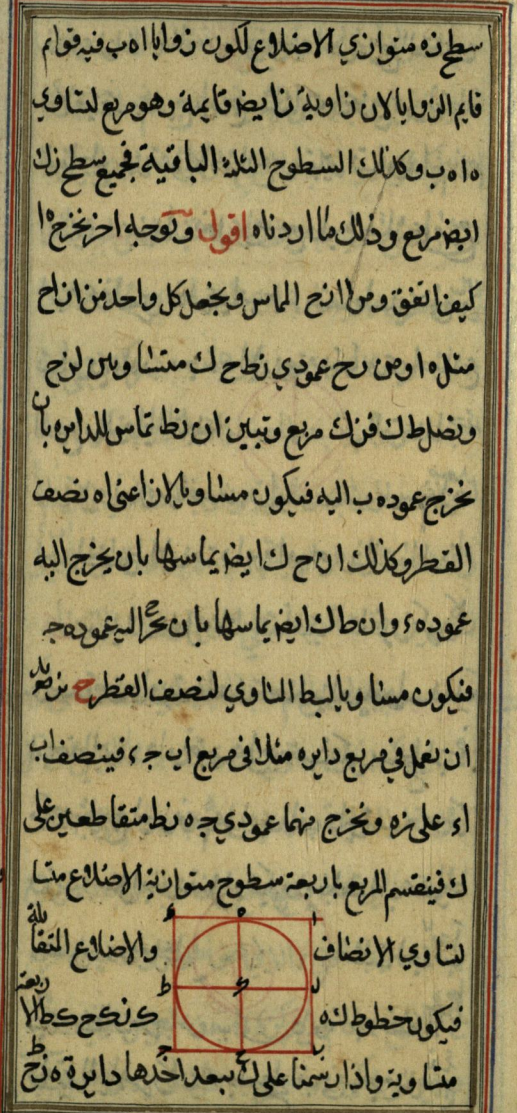 سطح زه متوازي الاضلاع لكون زوايا اه ب فيه قوايم
قايم الزوايا لان زاوية زايض قايمة وهو مربع لتساوي
ه اه ب وكذلك السطوح الثلثة الباقية فجميع سطح زك
ايض مربع وذلك ما اردناه اقول وبوجه اخر نخرج ه ا
كيف اتفق ومن ا ازح المماس ونجعل كل واحد من از اح
مثل ه ا ومن رح عمودي زط ح ك متساويين لزح
ونصل ط ك فزك مربع وتبين ان زط تماس للدايره بان
نخرج عمود ه ب اليه فيكون مساويا لاز اعنى اه نصف
القطر وكذلك ان ح ك ايض يماسها بان يخرج اليه
عمود ه ء وان ط ك ايض يماسها بان نخرج اليه عمود ه ج
فيكون مساويا لـ المساوي لنصف القطر ح نريد
ان نعمل في مربع دايره مثلا في مربع اب جء فينصف اب
اء على زه ونخرج منهما عمودي ح ه زط متقاطعين على
ك فينقسم المربع باربعة سطوح متوازية الاضلاع متسا
لتساوي الانصاف والاضلاع المتقابلة
فيكون خطوط ك ه ك ز ك ح ك ط الاربعة
متساوية واذا رسمنا على ك ببعد احدها دايرة ه زح ط
ء ه ا
ط ك ز
ج ح ب